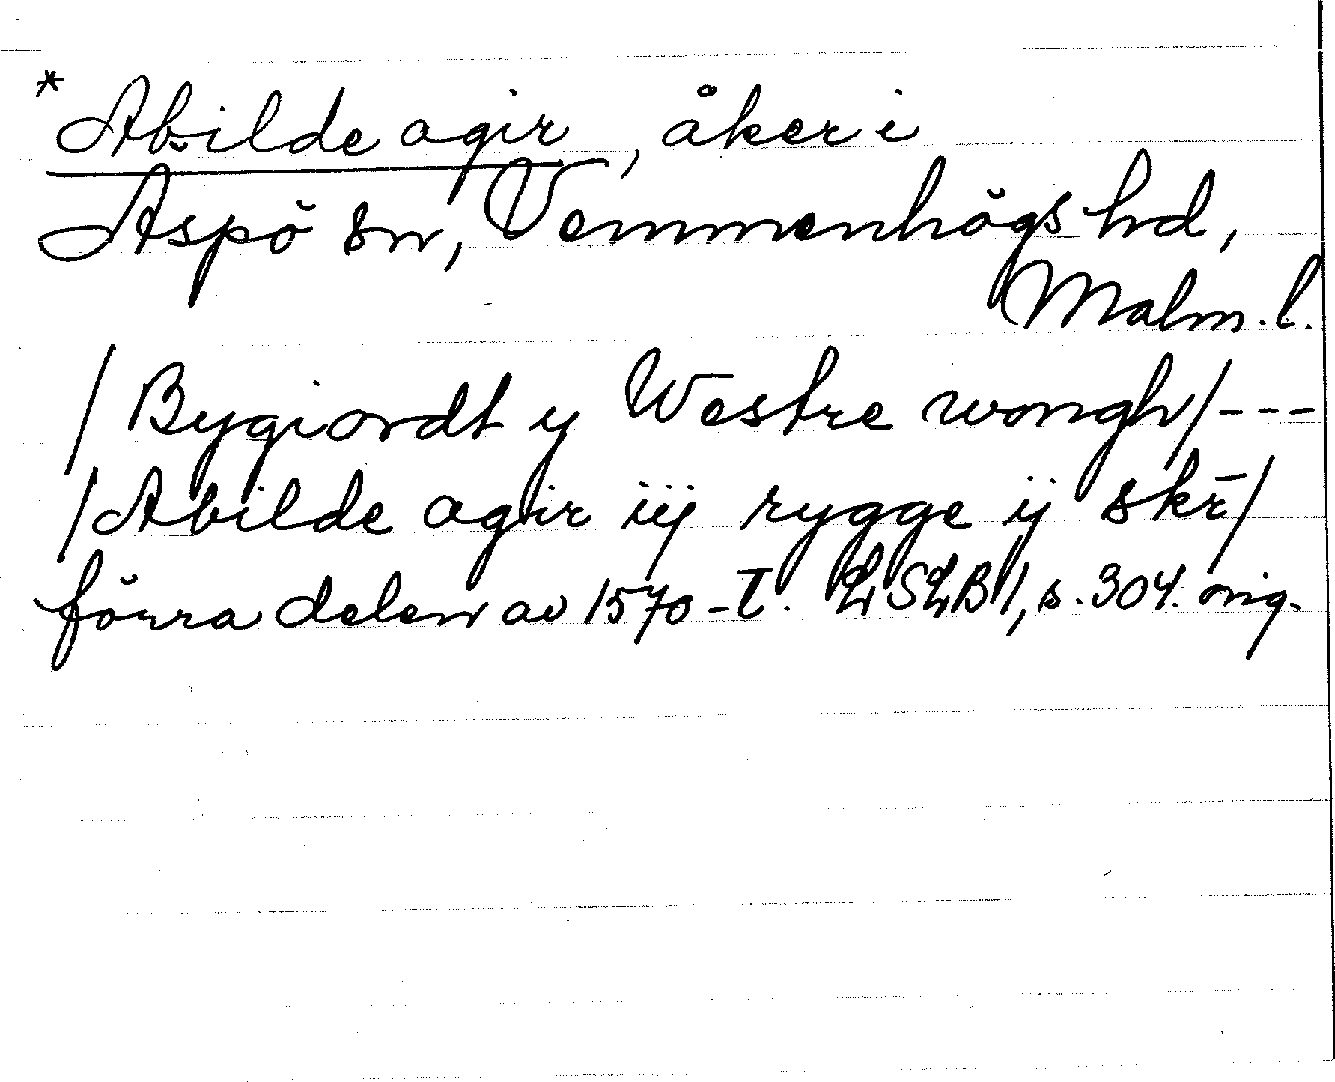 * Abilde agir, åker i
Aspö sn, Vemmenhögs hd,
Malm. l.
/ Bygiordt y Westre wongh / ---
/ Abilde agir iij rygge ij skr̄ /
förra delen av 1570-t. LSLB 1, s. 304. orig.